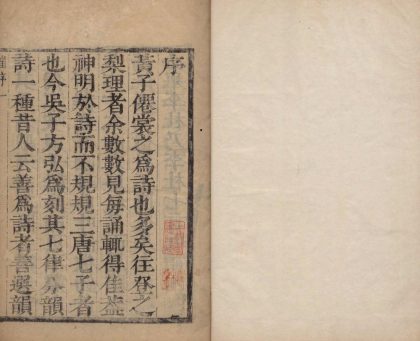 序
黃子僊裳之為詩也多矣往登之
梨理者余數數見每誦輒得佳蓋
神明於詩而不規規三唐七子者
也今吳子方弘為刻其七律分韻
詩一種昔人云善為詩者善選韻